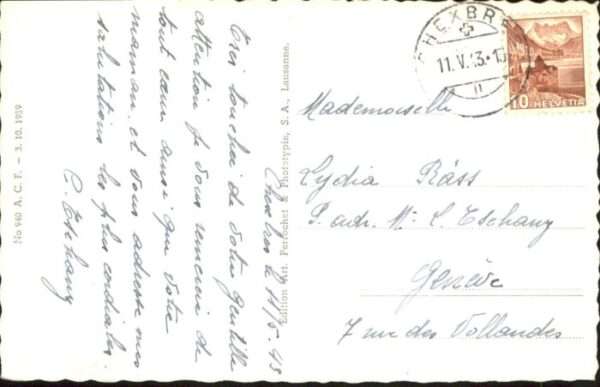 Chexbres le 11/5.43
Très touchée de votre gentille
attention je vous remercie de
tout cœur ainsi que votre
maman et vous adresse mes
salutations les plus cordiales.
C. Eschany
Edition Art. Perrochet & Phototypie, S. A., Lausanne.
No 940 A. C. F. — 3. 10. 1939
CHEXBRES
11.V.43-1
10 HELVETIA
Mademoiselle
Lydia Räss
P. adr. Mr. L. Eschany
Genève
7 rue des Vollandes